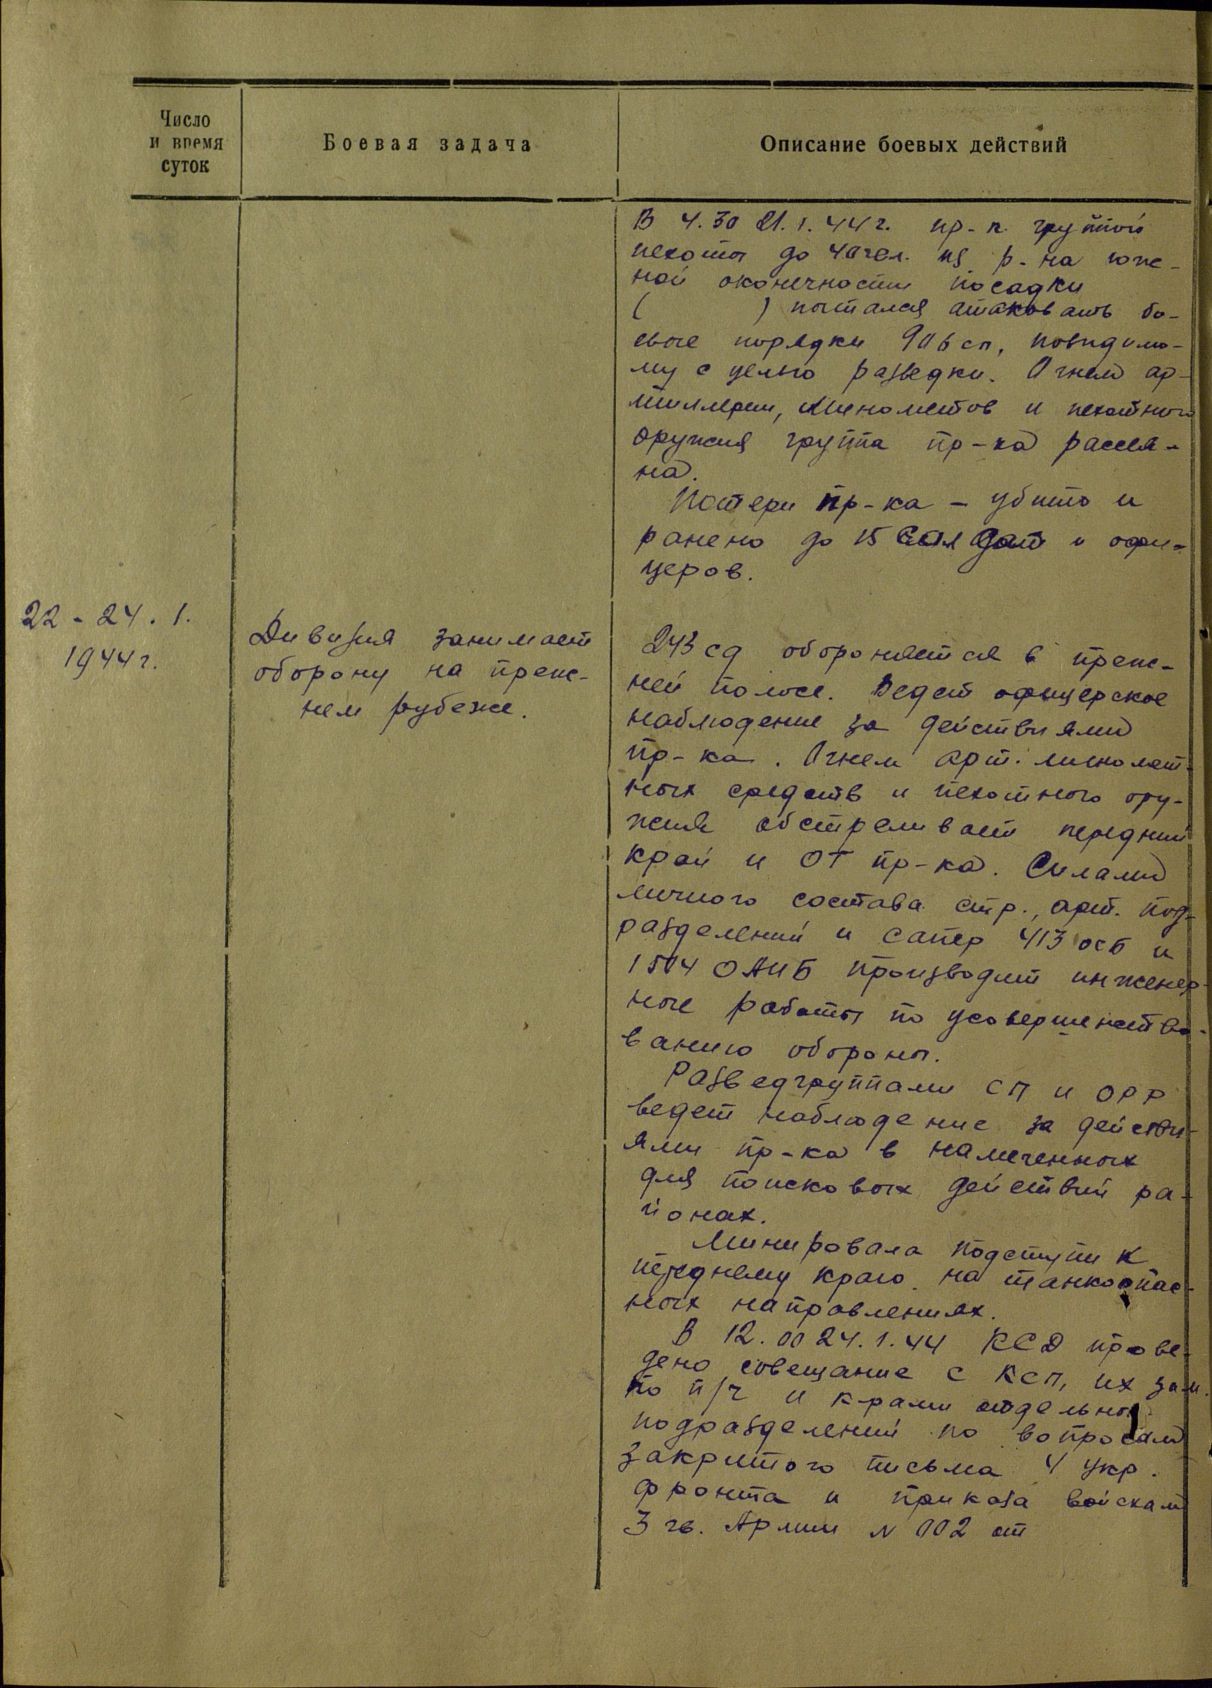 Число
и время
суток
Боевая задача
Описание боевых действий
В 4.30 21.1.44г. пр-к группой
пехоты до 40 чел. из р-на юж-
ной оконечности посадки
( ) пытался атаковать бо-
евые порядки 906 сп, повидимо-
му с целью разведки. Огнем ар-
тиллерии, минометов и пехотного
оружия группа пр-ка рассея-
на.
Потери пр-ка – убито и
ранено до 15 солдат и офи-
церов.
22-24.1.
1944г.
Дивизия занимает
оборону на преж-
нем рубеже.
243 сд обороняется в преж-
ней полосе. Ведет офицерское
наблюдение за действиями
пр-ка. Огнем арт. миномет-
ных средств и пехотного ору-
жия обстреливает передний
край и ОТ пр-ка. Силами
личного состава стр., арт. под-
разделений и сапер 413 осБ и
1504 ОАИБ производит инженер-
ные работы по усовершенство-
ванию обороны.
Разведгруппами СП и ОРР
ведет наблюдение за действи-
ями пр-ка в намеченных
для поисковых действий ра-
йонах.
Минировала подступи к
переднему краю на танкоопас-
ных направлениях.
В 12.00 24.1.44 КСД прове-
дено совещание с КСП, их зам.
по п/ч и к-рами отдельных
подразделений по вопросам
закрытого письма 4 Укр.
фронта и приказа войскам
3 гв. Армии N 002 от